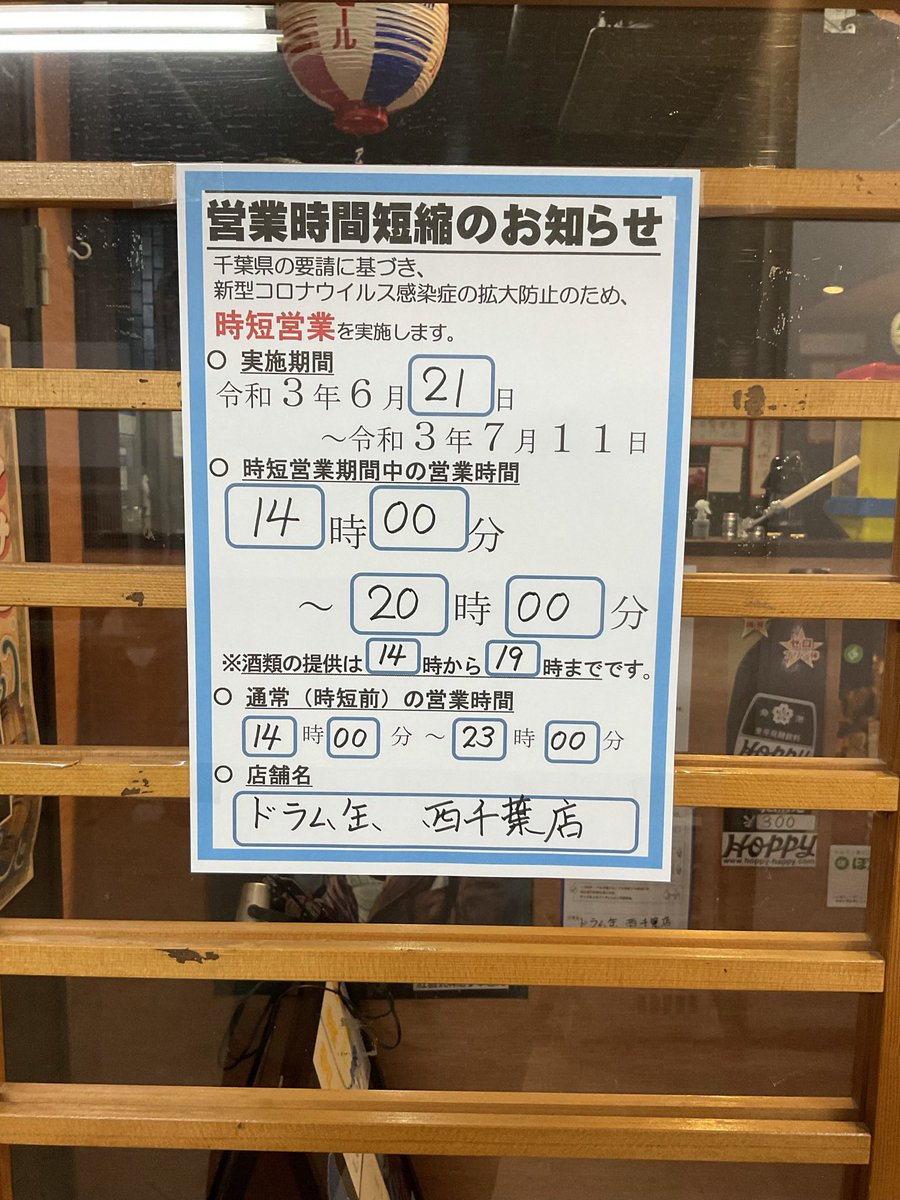 ール
営業時間短縮のお知らせ
千葉県の要請に基づき、
新型コロナウイルス感染症の拡大防止のため、
時短営業を実施します。
○ 実施期間
令和3年6月21日
～令和3年7月11日
○ 時短営業期間中の営業時間
14時00分
～20時00分
※酒類の提供は14時から19時までです。
○ 通常（時短前）の営業時間
14時00分～23時00分
○ 店舗名
ドラム缶、西千葉店
ゼロ
Hoppy
300
Hoppy
www.hoppy-happy.com
ドラム缶 西千葉店